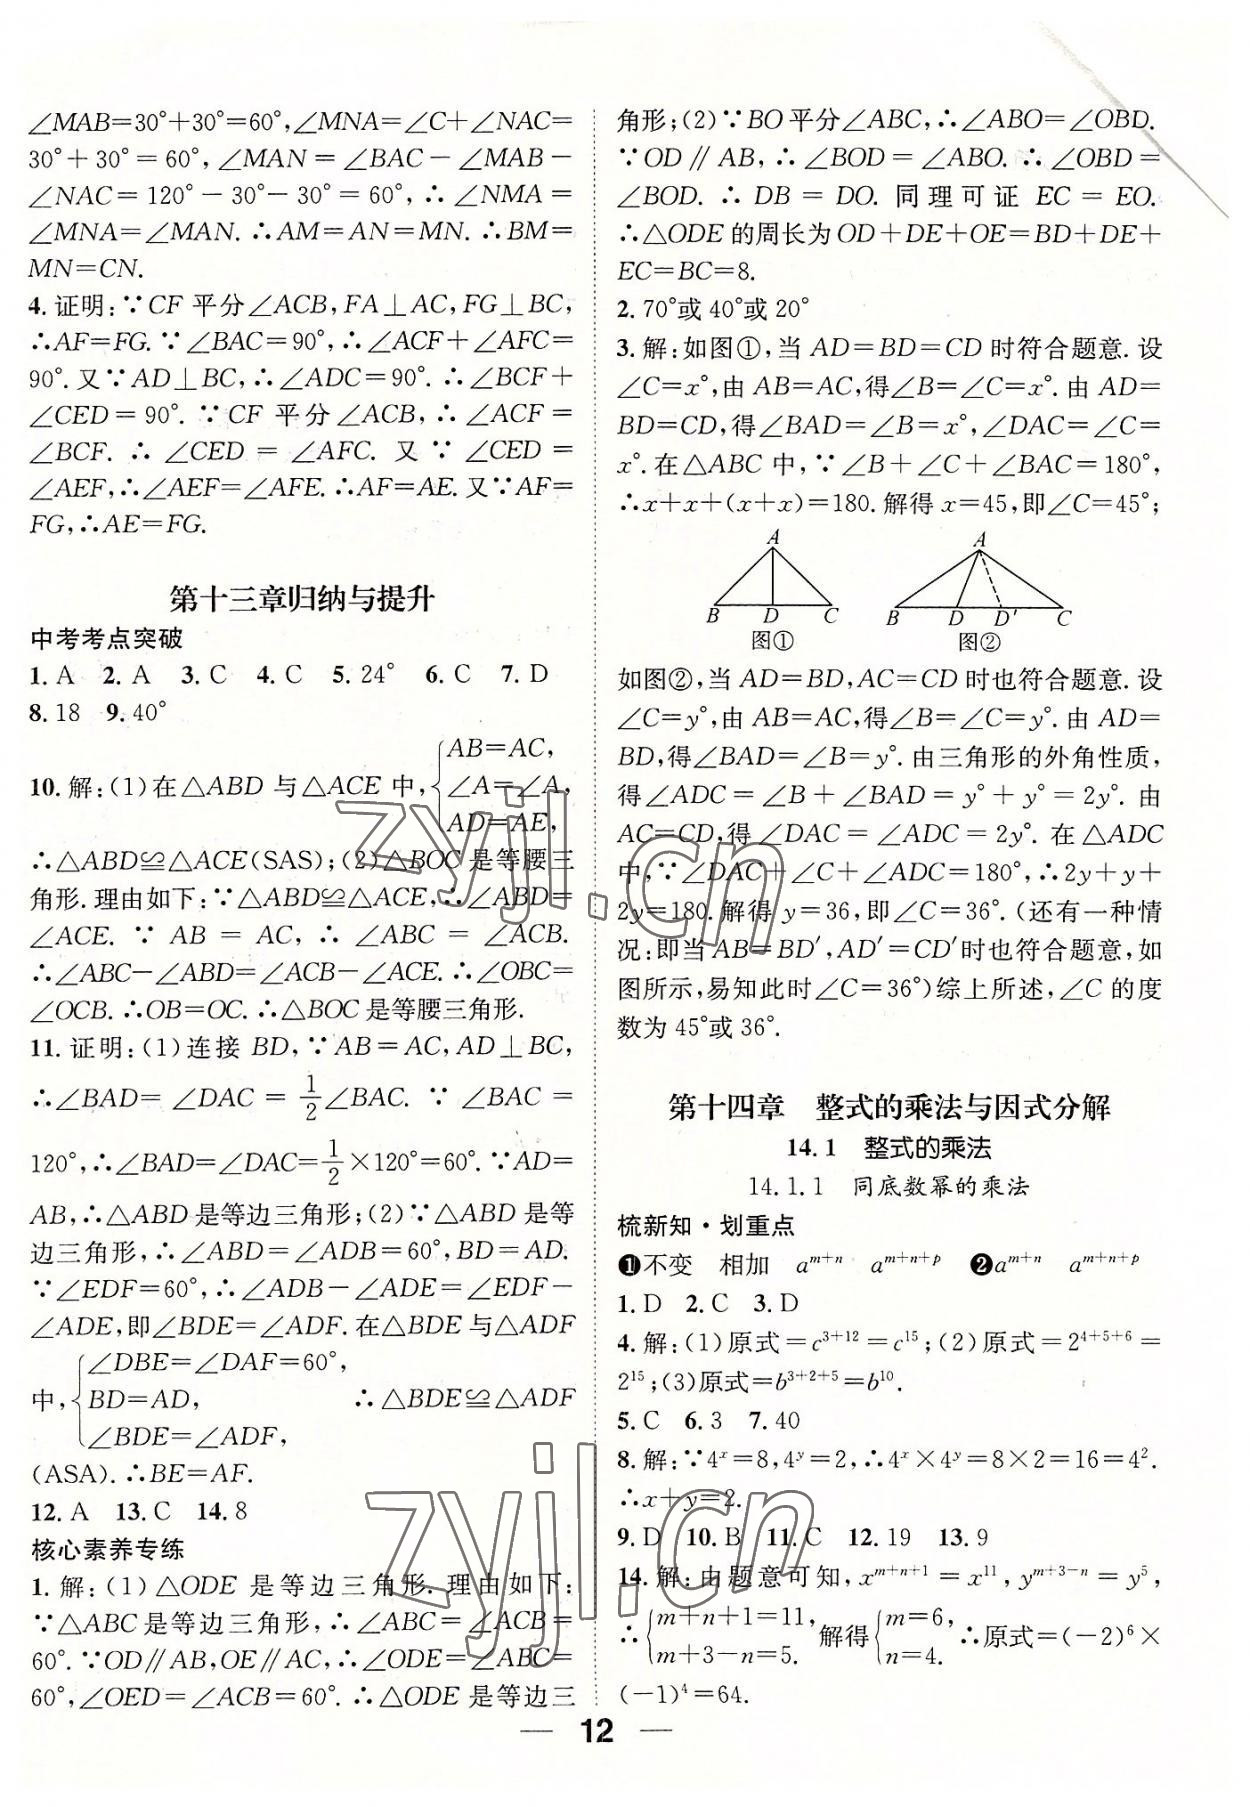 ∠MAB=30°+30°=60°,∠MNA=∠C+∠NAC=
30°+30°=60°,∠MAN=∠BAC-∠MAB-
∠NAC=120°-30°-30°=60°,∴∠NMA=
∠MNA=∠MAN.∴AM=AN=MN.∴BM=
MN=CN.
4.证明:∵CF平分∠ACB,FA⊥AC,FG⊥BC,
∴AF=FG.∵∠BAC=90°,∴∠ACF+∠AFC=
90°.又∵AD⊥BC,∴∠ADC=90°.∴∠BCF+
∠CED=90°.∵CF平分∠ACB,∴∠ACF=
∠BCF.∴∠CED=∠AFC.又∵∠CED=
∠AEF,∴∠AEF=∠AFE.∴AF=AE.又∵AF=
FG,∴AE=FG.
第十三章归纳与提升
中考考点突破
1.A 2.A 3.C 4.C 5.24° 6.C 7.D
8.18 9.40°
AB=AC,
10.解:(1)在△ABD与△ACE中,{∠A=∠A,
AD=AE,
∴△ABD≌△ACE(SAS);(2)△BOC是等腰三
角形.理由如下:∵△ABD≌△ACE,∴∠ABD=
∠ACE.∵AB=AC,∴∠ABC=∠ACB.
∴∠ABC-∠ABD=∠ACB-∠ACE.∴∠OBC=
∠OCB.∴OB=OC.∴△BOC是等腰三角形.
11.证明:(1)连接BD,∵AB=AC,AD⊥BC,
∴∠BAD=∠DAC=1/2∠BAC.∵∠BAC=
120°,∴∠BAD=∠DAC=1/2×120°=60°.∵AD=
AB,∴△ABD是等边三角形;(2)∵△ABD是等
边三角形,∴∠ABD=∠ADB=60°,BD=AD.
∵∠EDF=60°,∴∠ADB-∠ADE=∠EDF-
∠ADE,即∠BDE=∠ADF.在△BDE与△ADF
∠DBE=∠DAF=60°,
中,{BD=AD, ∴△BDE≌△ADF
∠BDE=∠ADF,
(ASA).∴BE=AF.
12.A 13.C 14.8
核心素养专练
1.解:(1)△ODE是等边三角形.理由如下:
∵△ABC是等边三角形,∴∠ABC=∠ACB=
60°.∵OD∥AB,OE∥AC,∴∠ODE=∠ABC=
60°,∠OED=∠ACB=60°.∴△ODE是等边三
角形;(2)∵BO平分∠ABC,∴∠ABO=∠OBD.
∵OD∥AB,∴∠BOD=∠ABO.∴∠OBD=
∠BOD.∴DB=DO.同理可证EC=EO.
∴△ODE的周长为OD+DE+OE=BD+DE+
EC=BC=8.
2.70°或40°或20°
3.解:如图①,当AD=BD=CD时符合题意.设
∠C=x°,由AB=AC,得∠B=∠C=x°.由AD=
BD=CD,得∠BAD=∠B=x°,∠DAC=∠C=
x°.在△ABC中,∵∠B+∠C+∠BAC=180°,
∴x+x+(x+x)=180.解得x=45,即∠C=45°;
A A
B D C B D D′ C
图① 图②
如图②,当AD=BD,AC=CD时也符合题意.设
∠C=y°,由AB=AC,得∠B=∠C=y°.由AD=
BD,得∠BAD=∠B=y°.由三角形的外角性质,
得∠ADC=∠B+∠BAD=y°+y°=2y°.由
AC=CD,得∠DAC=∠ADC=2y°.在△ADC
中,∵∠DAC+∠C+∠ADC=180°,∴2y+y+
2y=180.解得y=36,即∠C=36°.(还有一种情
况:即当AB=BD′,AD′=CD′时也符合题意,如
图所示,易知此时∠C=36°)综上所述,∠C的度
数为45°或36°.
第十四章 整式的乘法与因式分解
14.1 整式的乘法
14.1.1 同底数幂的乘法
梳新知·划重点
❶不变 相加 a^{m+n} a^{m+n+p} ❷a^{m+n} a^{m+n+p}
1.D 2.C 3.D
4.解:(1)原式=c^{3+12}=c^{15};(2)原式=2^{4+5+6}=
2^{15};(3)原式=b^{3+2+5}=b^{10}.
5.C 6.3 7.40
8.解:∵4^x=8,4^y=2,∴4^x×4^y=8×2=16=4².
∴x+y=2.
9.D 10.B 11.C 12.19 13.9
14.解:由题意可知,x^{m+n+1}=x^{11},y^{m+3-n}=y^5,
∴{m+n+1=11, m+3-n=5. 解得{m=6, n=4. ∴原式=(-2)^6×
(-1)^4=64.
12
zyjl.cn
zyjl.cn